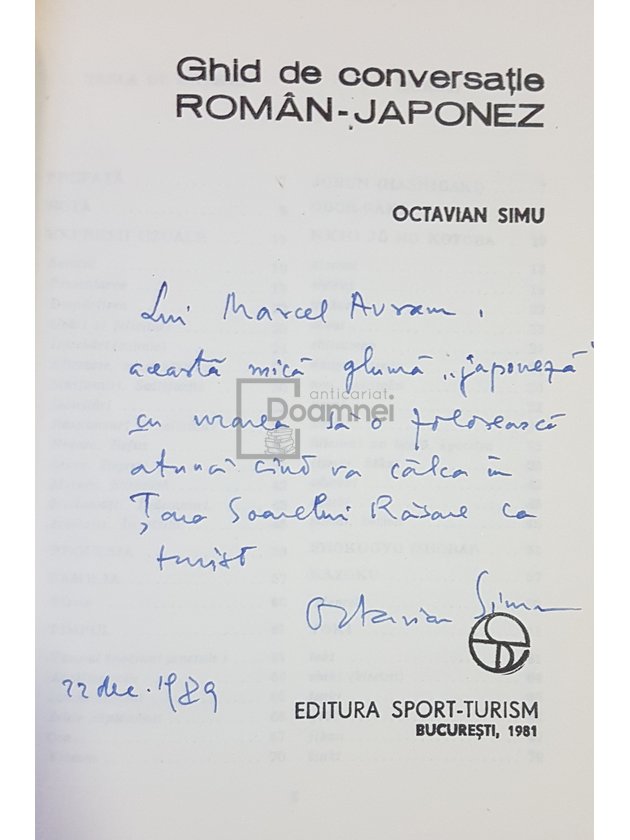 Ghid de conversație
ROMÂN-JAPONEZ
OCTAVIAN SIMU
Lui Marcel Avram,
această mică glumă „japoneză”
cu urarea să o folosească
atunci când va călca în
Țara Soarelui Răsare ca
turist
Octavian Simu
22 dec. 1989
anticariat
Doamnei
EDITURA SPORT-TURISM
BUCUREȘTI, 1981